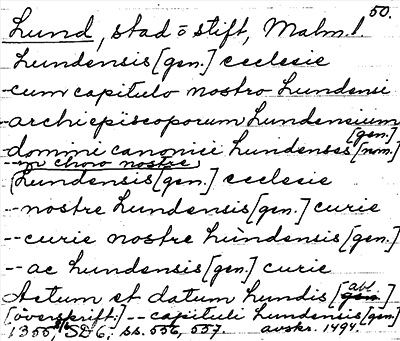 50.
Lund, stad o stift, Malm. l
Lundensis [gen.] ecclesie
-cum capitulo nostro Lundensi
-archiepiscoporum Lundensium [gen.]
domini canonici lundenses [nom.]
-- in choro nostre
(Lundensis [gen.] ecclesie
-- nostre Lundensis [gen.] curie
-- curie nostre Lundensis [gen.]
-- ac lundensis [gen.] curie
Actum et datum lundis [abl.]
[överskrift:] -- capituli lundensis [gen]
1355, SD 6, ss. 556, 557. avskr. 1494.